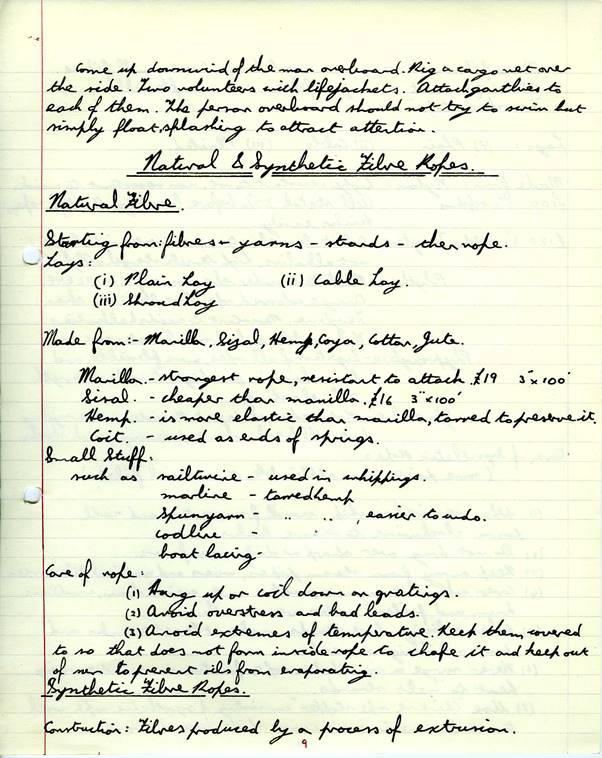 Come up downwind of the man overboard. Rig a cargo net over
the side. Two volunteers with lifejackets. Attach gantlines to
each of them. The person overboard should not try to swim but
simply float, splashing to attract attention.
Natural & Synthetic Fibre Ropes.
Natural Fibre.
Starting from: fibres - yarns - strands - then rope.
Lays:
(i) Plain Lay (ii) Cable Lay.
(iii) Shroud Lay
Made from:- Manilla, Sisal, Hemp, Coya, Cotton, Jute.
Manilla. - strongest rope, resistant to attack. £19 3"x100'
Sisal. - cheaper than manilla. £16 3"x100'
Hemp. - is more elastic than manilla, tarred to preserve it.
Coir. - used as ends of springs.
Small Stuff:
such as sailtwine - used in whippings.
marline - tarred hemp
spunyarn - " " , easier to undo.
codline -
boat lacing -
Care of rope:
(1) Hang up or coil down on gratings.
(2) Avoid overstress and bad leads.
(3) Avoid extremes of temperature. Keep them covered
to so that does not form inside rope to chafe it and keep out
of sun to prevent oils from evaporating.
Synthetic Fibre Ropes.
Construction: Fibres produced by a process of extrusion.
9